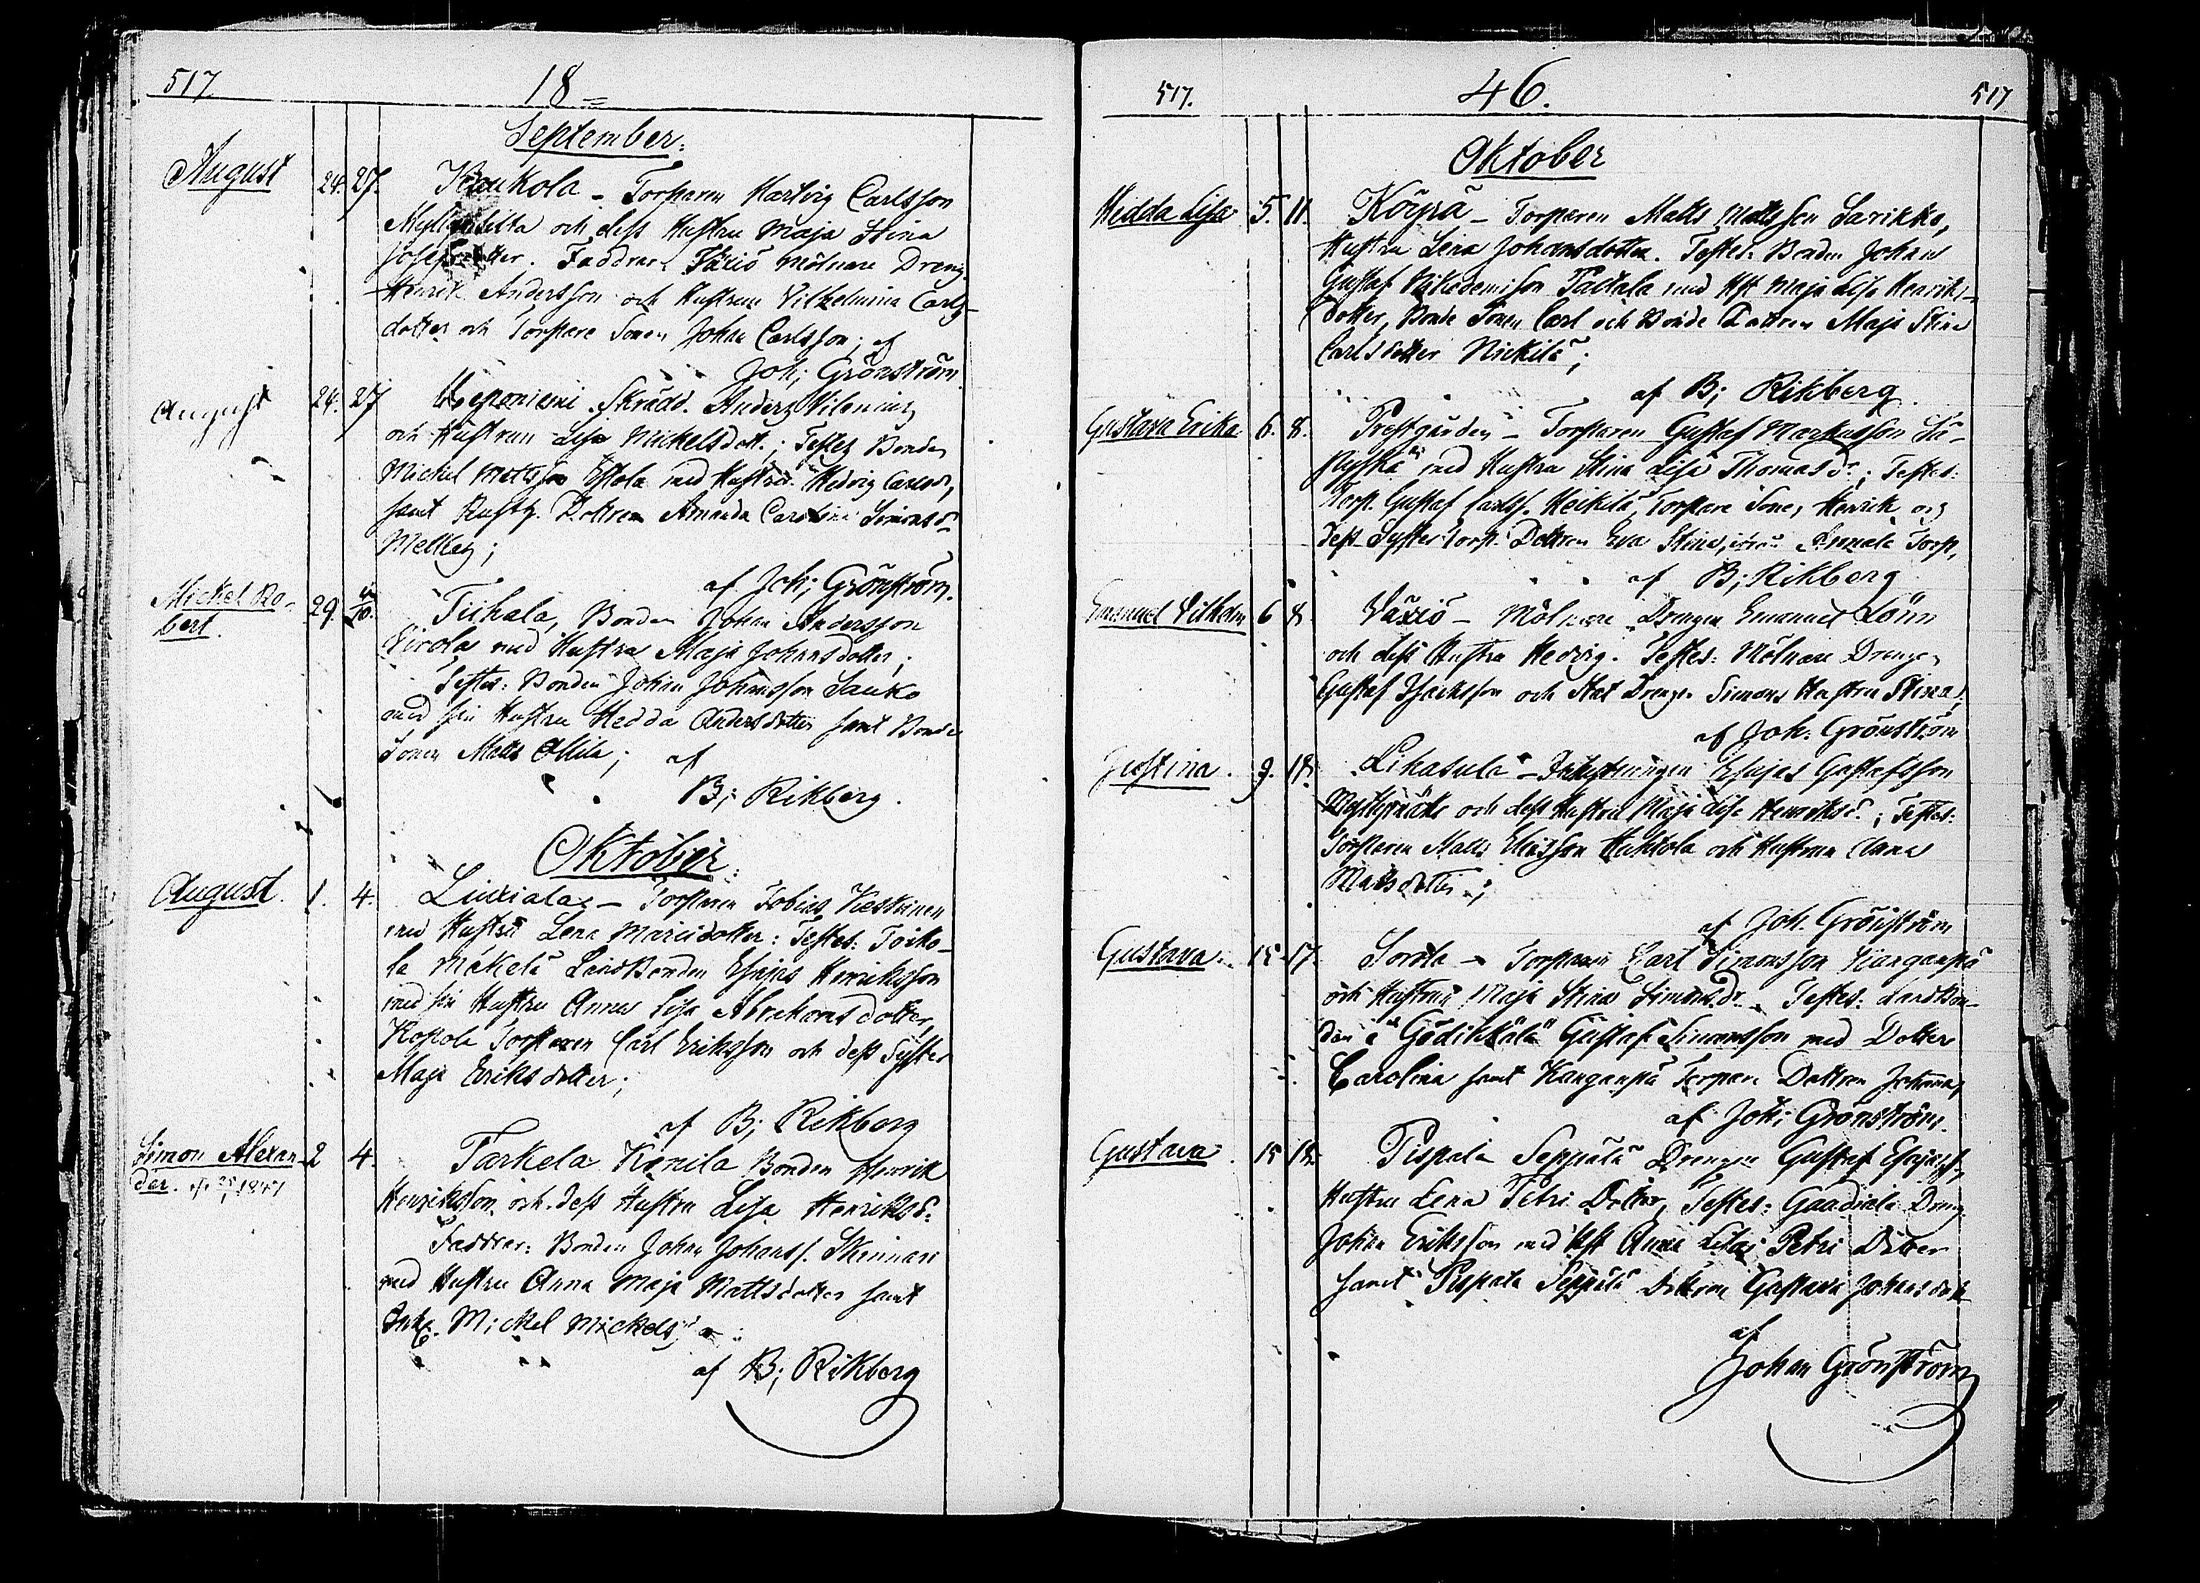 517.
18 =
September:
August 24. 27. Kaukola - Torparen Hartvig Carlsson
och dess Hustru Maja Stina
Josefsdotter. Faddrar: Mölnare Dreng
Henrik Andersson och Hustrun Vilhelmina Carls-
dotter och Torpare Sonen Johan Carlsson; af
Joh; Grönström
August 24. 27 Skrädd. Anders
och Hustrun Lisa Mickelsdott.; Testes Bonden
Michel Mattsson med Hustru Hedvig Carlsd,
samt Rusth. Dottren Amanda Carolina Simonsd.
Mellby;
af Joh; Grönström.
Mickel Ro-
bert. 29. 4/10. Tiihala, Bonden Johan Andersson
Eirola med Hustrun Maja Johansdotter;
Testes: Bonden Johan Johansson Sauko
med sin Hustru Hedda Andersdotter samt Bonde
Sonen Matts Ollila; af
B; Rikberg.
Oktober:
August. 1. 4. Liuxiala - Torparen Tobias Keskinen
med Hustru Lena Marcidotter: Testes: Toiko-
la Mäkelä LandBonden Esajas Henriksson
med sin Hustru Anna Lisa Abrahamsdotter,
Torparen Carl Eriksson och dess Syster
Maja Eriksdotter;
af B; Rikberg
Simon Alexan-
der. 1847 2 4. Tarkela Bonden Henrik
Henriksson och dess Hustru Lisa Henriksd:
Faddrar: Bonden Johan Johanss. Skinnari
med Hustru Anna Maja Mattsdotter samt
Inh. Mickel Mickels;
af B; Rikberg
517.
46.
517
Oktober
Hedda Lisa 5. 11. Köyrä - Torparen Matts Mattsson Sarikko,
Hustru Lena Johansdotter. Testes: Bonden Johan
Gustaf Nikodemisson med Hst Maja Lisa Henriks-
dotter, Bonde Sonen Carl och Bonde Dottren Maja Stina
Carlsdotter Nickilä;
af B; Rikberg.
Gustava Erika. 6. 8. Prestgården - Torparen Gustaf Markusson
med Hustru Stina Lisa Thomasd.; Testes:
Torp. Gustaf Carlss. Heikilä, Torpare Sonen Henrik och
dess Syster Torp. Dottren Eva Stina, Torp,
af B; Rikberg
Emanuel Vilhelm 6 8. Växiö - Mölnare Drengen Emanuel Lönn
och dess Hustru Hedvig. Testes: Mölnare Drengen
Gustaf Isacksson och Stat Drengen Simons Hustru Stina;
af Joh: Grönström
Justina. 9. 18. Lihasula - Esajas Gustafsson
och dess Hustru Maja Lisa Henriksd.; Testes:
Torparen Matts Eliasson Huktola och Hustrun Anna
Matsdotter;
af Joh. Grönström
Gustava. 15 17. Sorola - Torparen Carl Simonsson Kangaspä
och Hustrun Maja Stina Simonsd. Testes: Landbon-
den Gustaf Simonsson med Dotter
Carolina samt Kangaspä Torpare Dottren Johanna,
af Joh; Grönström.
Gustava. 15 18. Pispala Seppälä Drengen Gustaf Esajass.,
Hustru Lena Petri Dotter, Testes: Dreng
Johan Eriksson med Hst Anna Lisa Petri Dotter
samt Pispala Seppälä Dottren Gustava Johansdott
af
Johan Grönström